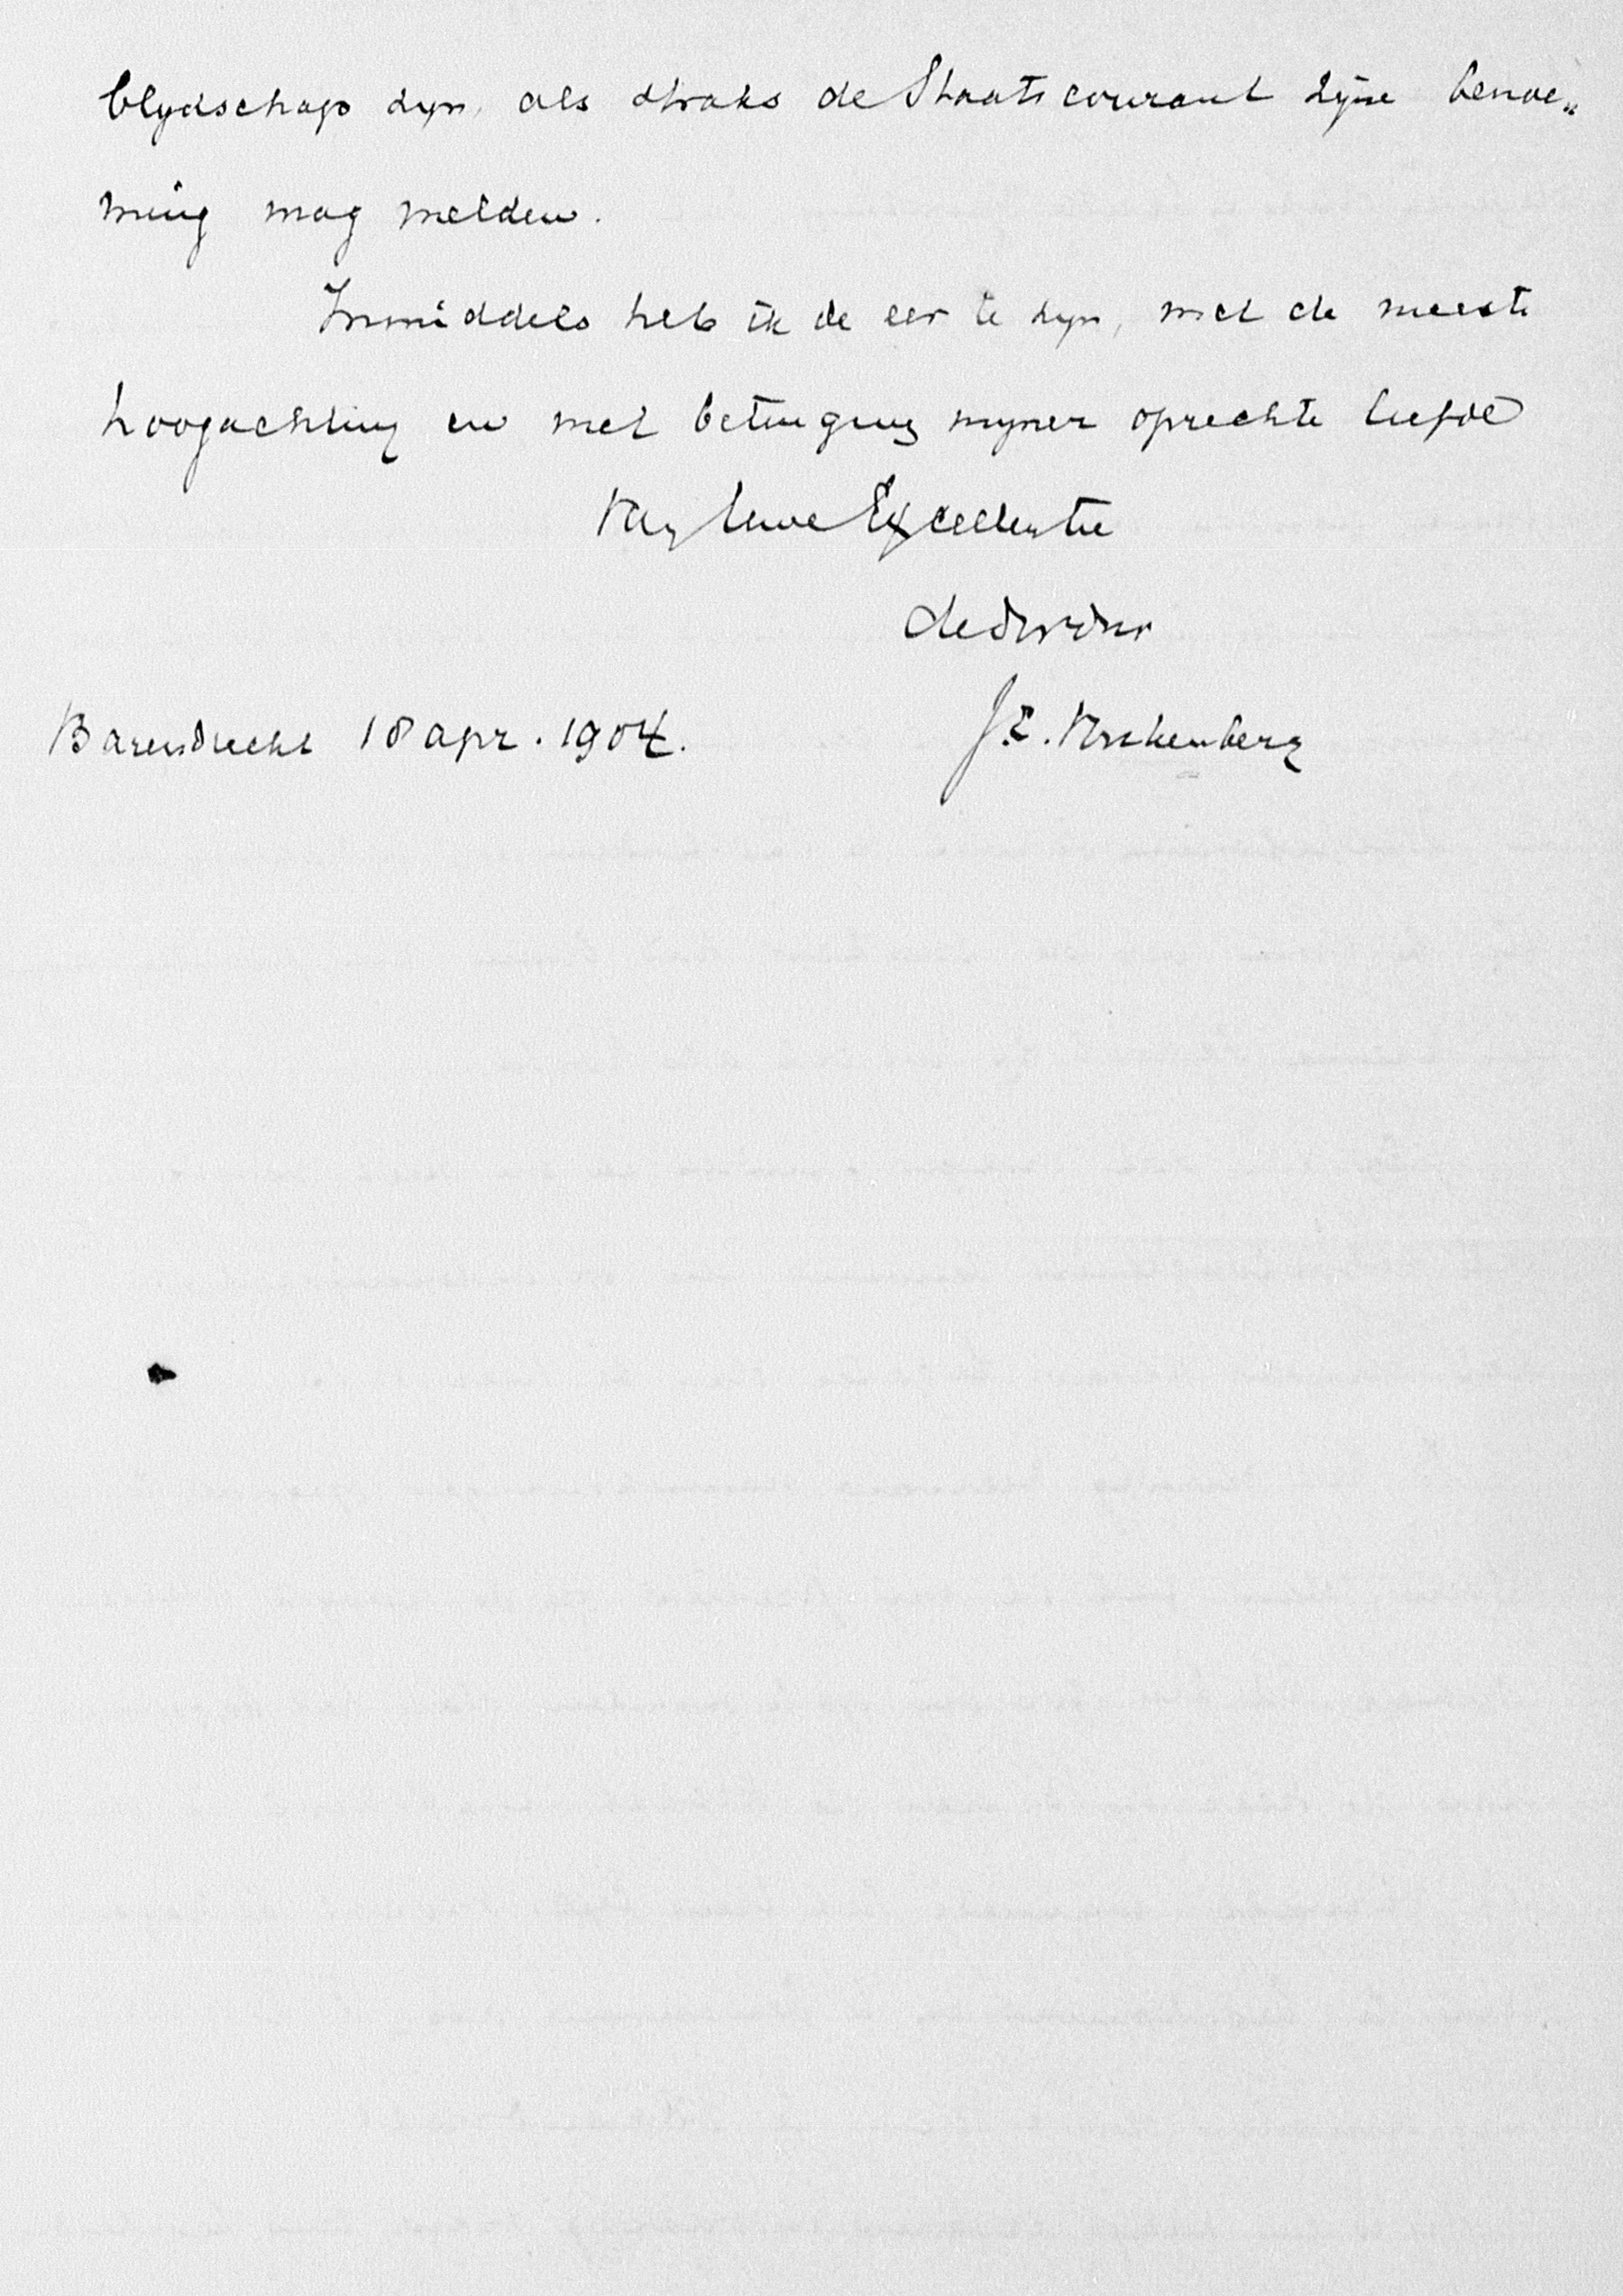 blydschap zyn, als straks de Staatscourant zyne benoe„
ming mag melden.
Inmiddels heb ik de eer te zyn, met de meeste
hoogachting en met betuiging myner oprechte liefde
Van Uwe Excellentie
de dw dnr
Barendrecht 18 apr. 1904.
J. E. Vonkenberg